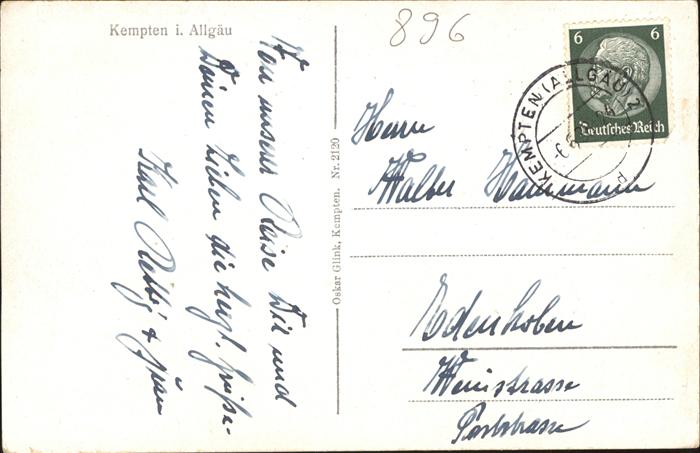 Kempten i. Allgäu
896
6 6
Deutsches Reich
KEMPTEN (ALLGÄU) 2
Von unserer Reise Dir und
Deinen Lieben die herzl. Grüße.
Karl & Frau
Oskar Glink, Kempten. Nr. 2120
Herrn
Walter Hammann
Edenkoben
Weinstrasse
Poststrasse